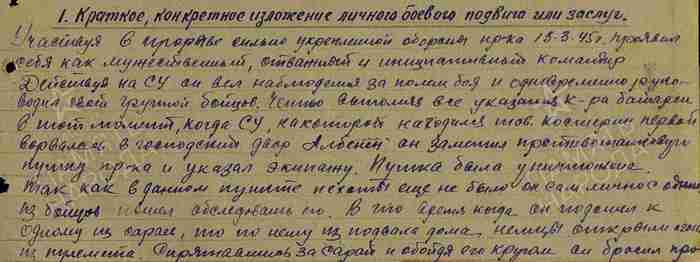 I. Краткое, конкретное изложение личного боевого подвига или заслуг.
Участвуя в прорыве сильно укрепленной обороны пр-ка 18.3.45 г. проявил
себя как мужественный, отважный и инициативный командир
Действуя на СУ он вел наблюдения за полем боя и одновременно руко-
водил своей группой бойцов. Четко выполняя все указания к-ра батареи
в тот момент, когда СУ, на которой находился тов. Костерин первой
ворвалась в господский двор он заметил противотанковую
пушку пр-ка и указал экипажу. Пушка была уничтожена.
Так как в данном пункте пехоты еще не было он сам лично с одним
из бойцов пошел обследовать его. В это время когда он подошел к
одному из сараев, то по нему из подвала дома, немцы открыли огонь
из пулемета. Спрятавшись за сарай и обойдя его кругом он бросил про-